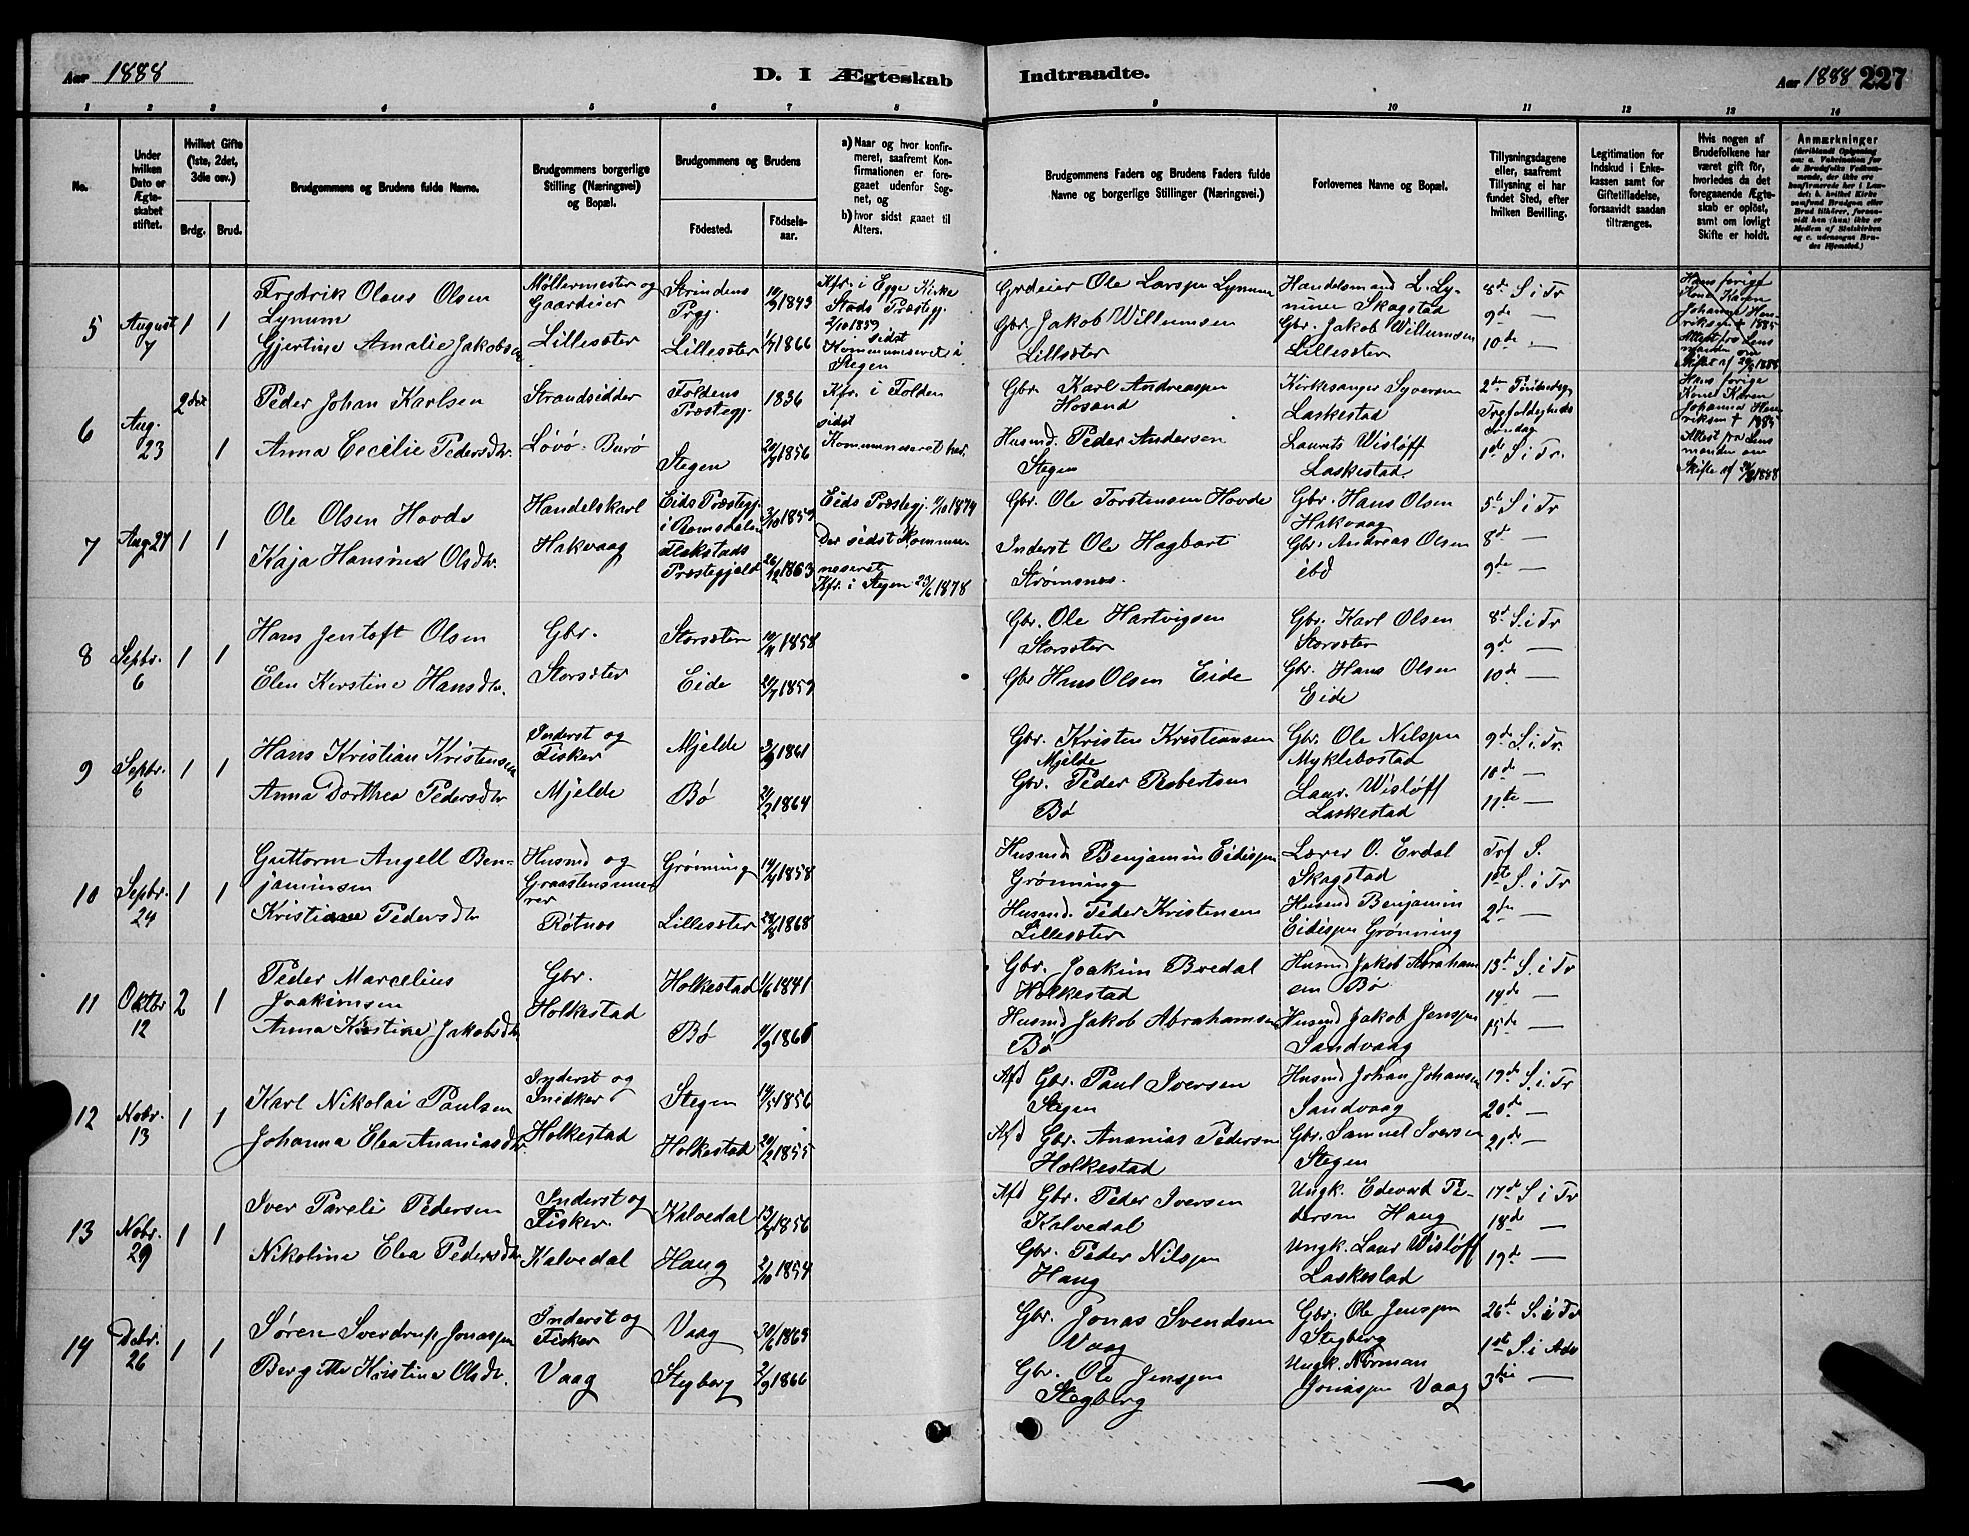 Aar 1888
D. I Ægteskab
Indtraadte.
Aar 1888 227
1 2 3 4 5 6 7 8
9 10 11 12 13 14
No.
Under hvilken Dato er Ægteskabet stiftet.
Hvilket Gifte (1ste, 2det, 3die osv.)
Brdg. Brud.
Brudgommens og Brudens fulde Navne.
Brudgommens borgerlige Stilling (Næringsvei) og Bopæl.
Brudgommens og Brudens
Fødested. Fødselsaar.
a) Naar og hvor konfirmeret, saafremt Konfirmationen er foregaaet udenfor Sognet, og
b) hvor sidst gaaet til Alters.
Brudgommens Faders og Brudens Faders fulde Navne og borgerlige Stillinger (Næringsvei.)
Forlovernes Navne og Bopæl.
Tillysningsdagene eller, saafremt Tillysning ei har fundet Sted, efter hvilken Bevilling.
Legitimation for Indskud i Enkekassen samt for Giftetilladelse, forsaavidt saadan tiltrænges.
Hvis nogen af Brudefolkene har været gift før, hvorledes da det foregaaende Ægteskab er opløst, samt om lovligt Skifte er holdt.
Anmærkninger
5
August 7
1 1
Fredrik Olaus Olsen
Lynum
Gjertine Amalie Jakobsen
Møllermester og
Gaardeier
Lillesæter
Strindens
Prgj.
Lillesæter
10/9 1843
1/7 1866
Kfr. i Egge Kirke
Stods Præstegj.
2/10 1859
sidst
Kommuniseret i
Stegen
Grdeier Ole Larssen Lynum
Gbr. Jakob Willumsen
Lillesæter
Handelsmand L. Lynum
Skagstad
Gbr. Jakob Willumsen
Lillesæter
8de S i Tr
9de —
10de —
Hans forige
Kone Karen
Johanna Henriksen
† 1885
Attest fra Lensmanden
om
Skifte af
6
Aug. 23
2den 1
Peder Johan Karlsen
Anna Cecilie Pedersdtr.
Strandsidder
Løvø. Burø
Foldens
Præstegj.
Stegen
1836
20/7 1856
Kfr. i Folden
sidst
Kommuniseret her.
Gbr. Karl Andreassen
Hosand
Husmd. Peder Andersen
Stegen
Kirkesanger Syversen
Laskestad
Laurits Wisløff
Laskestad.
2den Pintsedag
Trefoldigheds
Søndag
1ste S. i Tr.
Hans forige
Kone Karen
Johanna Henriksen
† 1885
Attest fra Lensmanden
om
Skifte af
7
Aug. 27
1 1
Ole Olsen Hovde
Kaja Hansine Olsdtr.
Handelskarl
Hakvaag
Eids Præstegj.
i Romsdalen
Flakstads
Præstegjeld
3/10 1859
26/12 1863
Eids Præstegj. 11/10 1874
Der sidst Kommuniseret
Kfr. i Stegen 23/6 1878
Gbr. Ole Torstensen Hovde
Inderst Ole Hagbart
Strømsnes.
Gbr. Hans Olsen
Hakvaag
Gbr. Andreas Olsen
ibd
5te S i Tr
8de —
9de —
8
Septbr. 6
1 1
Hans Jentoft Olsen
Elen Kerstine Hansdtr.
Gbr.
Storsæter
Storsæter
Eide
10/11 1858
20/7 1859
Gbr. Ole Hartvigsen
Storsæter
Gbr Hans Olsen Eide
Gbr. Karl Olsen
Storsæter
Gbr. Hans Olsen
Eide
8de S. i Tr
9de —
10de —
9
Septbr. 6
1 1
Hans Kristian Kristensen
Anna Dorthea Pedersdtr
Inderst og
Fisker
Mjelde
Mjelde
Bø
3/9 1861
21/2 1864
Gbr. Kristen Kristiansen
Mjelde
Gbr. Peder Robertsen
Bø
Gbr. Ole Nilssen
Myklebostad
Laur. Wisløff
Laskestad
9de S. i. Tr.
10de —
11te —
10
Septbr. 24
1 1
Guttorm Angell Benjaminsen
Kristiane Pedersdtr
Husmd og
Graastensmurer
Røtnes
Grønning
Lillesæter
14/4 1858
28/8 1868
Husmd Benjamin Eidissen
Grønning
Husmd. Peder Kristensen
Lillesæter
Lærer O. Evdal
Skagstad
Husmd Benjamin
Eidissen Grønning
Trf S.
1ste S. i Tr
2den —
11
Oktbr 12
2 1
Peder Marcelius
Joakimsen
Anna Kristine Jakobsdtr
Gbr.
Holkestad
Holkestad
Bø
1/6 1841
Gbr. Joakim Bredal
Holkestad
Husmd Jakob Abrahamsen
Bø
Husmd Jakob Abrahamsen
Bø
Husmd Jakob Jenssen
Sandvaag
13de S. i Tr
14de —
15de —
12
Novbr. 13
1 1
Karl Nikolai Paulsen
Johanna Elea Ananiasdtr.
Inderst og
Snidker
Holkestad
Stegen
Holkestad
14/5 1856
20/2 1855
Afd Gbr. Paul Iversen
Stegen
Afd Gbr. Ananias Pedersen
Holkestad
Husmd Johan Johansen
Sandvaag
Gbr. Samuel Iversen
Stegen
19de S. i Tr
20de —
21de —
13
Novbr. 29
1 1
Iver Pareli Pedersen
Nikoline Elea Pedersdtr
Inderst og
Fisker
Kalvedal
Kalvedal
Haug
13/4 1856
2/10 1854
Afd Gbr. Peder Iversen
Kalvedal
Gbr. Peder Nilssen
Haug
Ungk. Edevard Pedersen
Haug
Ungk. Laur Wisløff
Laskestad
17de S. i Tr
18de —
19de —
14
Debr. 26
1 1
Søren Sverdrup Jonassen
Bergitte Kristine Olsdtr.
Inderst og
Fisker
Vaag
Vaag
Stegberg
30/6 1863
2/9 1866
Gbr. Jonas Svendsen
Vaag
Gbr. Ole Jenssen
Stegberg
Gbr. Ole Jenssen
Stegberg
Ungk. Norman
Jonassen Vaag
26de S. i Tr
1ste S. i Adv
3die —